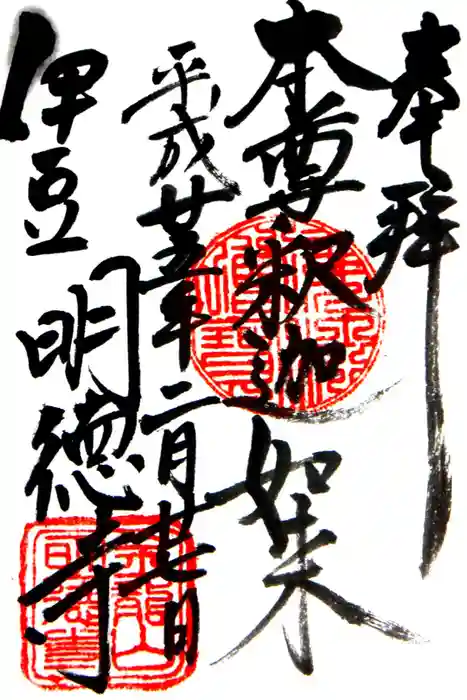 奉拝
本尊釈迦如来
平成廿五年二月廿七日
伊豆 明徳寺